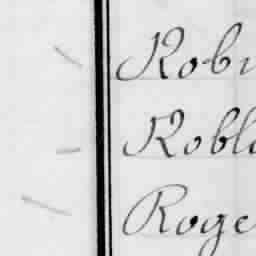 Robi
Robl
Roge